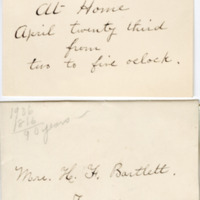 At Home
April twenty third
from
two to five oclock.
1936
1846
90 years
Mrs. H. F. Bartlett.